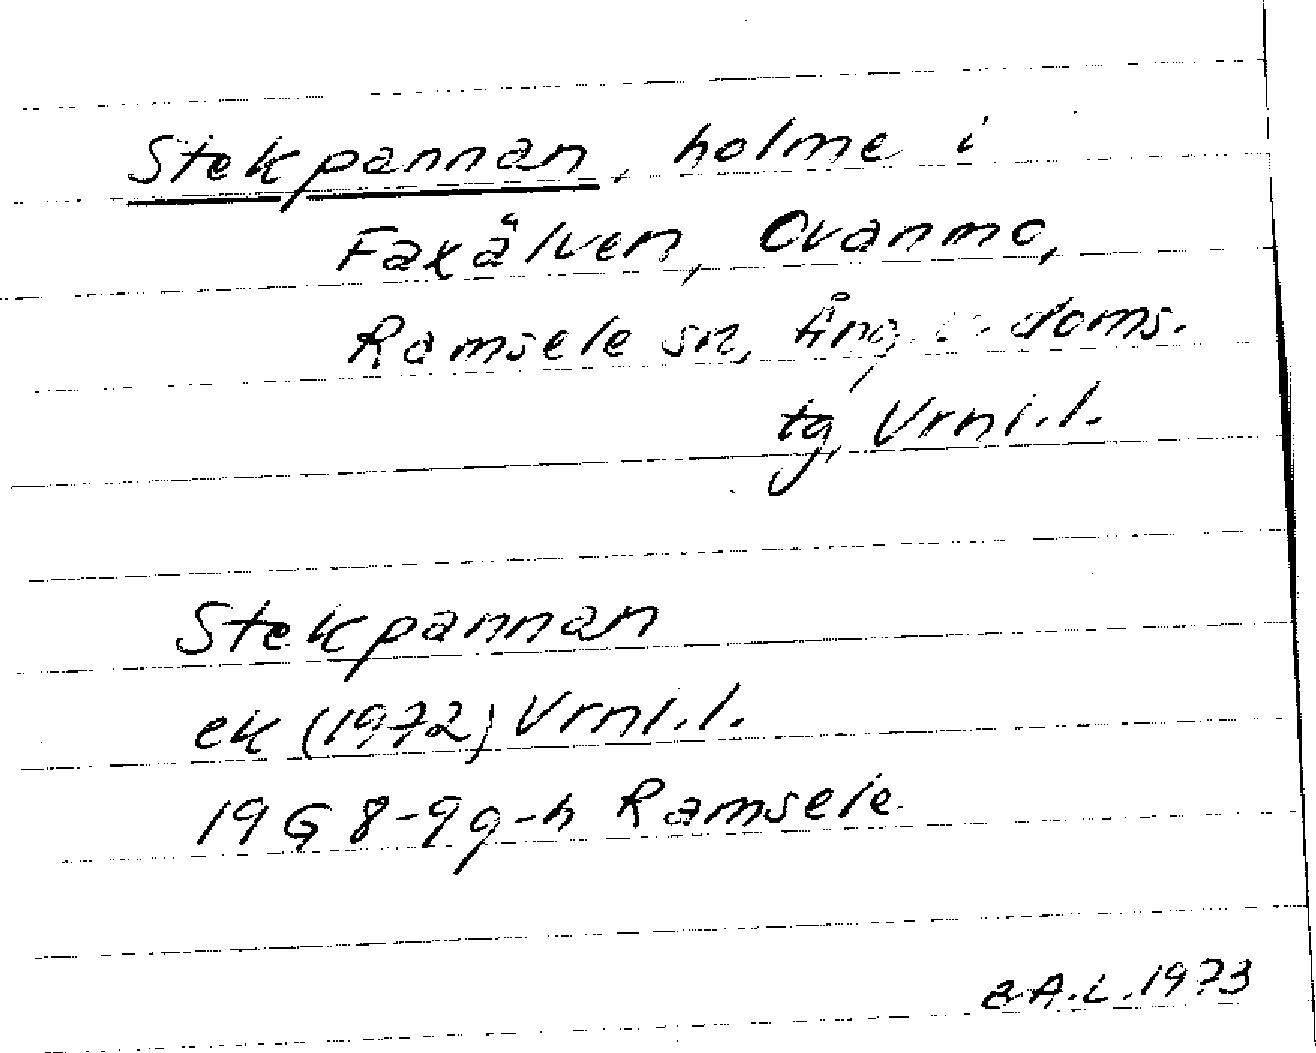 Stekpannan, holme i
Faxälven, Ovanmo,
Ramsele sn, Ång. doms.
tg, Vrnl.l.
Stekpannan
ek (1972) Vrnl.l.
19G 8-9g-h Ramsele
A.L. 1973